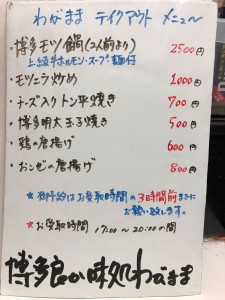 わがまま テイクアウト メニュー
・博多モツ鍋(2人前より) 2500円
上級牛ホルモン・スープ・麺付
・モツニラ炒め 1000円
・チーズ入りトン平焼き 700円
・博多明太玉子焼き 500円
・鶏の唐揚げ 600円
・おこぜの唐揚げ 800円
★御予約はお受取時間の3時間前までに
お願い致します。
★お受取時間 17:00〜20:00の間
博多良か味処わがまま